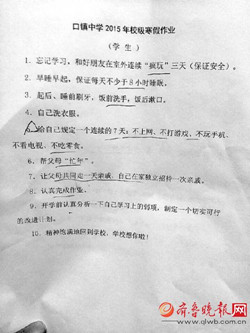 口镇中学2015年校级寒假作业
（学 生）
1、忘记学习，和好朋友在室外连续“疯玩”三天（保证安全）。
2、早睡早起，保证每天不少于8小时睡眠。
3、起后、睡前刷牙，饭前洗手，饭后漱口。
4、自己洗衣服。
给自己规定一个连续的7天：不上网、不打游戏、不玩手机、
不看电视、不吃零食。
6、帮父母“忙年”。
7、让父母共同走一天亲戚，自己在家独立招待一次亲戚。
8、认真完成作业。
9、开学前认真分析一下自己学习上的弱项，制定一个切实可行
的改进计划。
10、精神饱满地回到学校，学校想你啦！
齐鲁晚报网
www.qlwb.com.cn